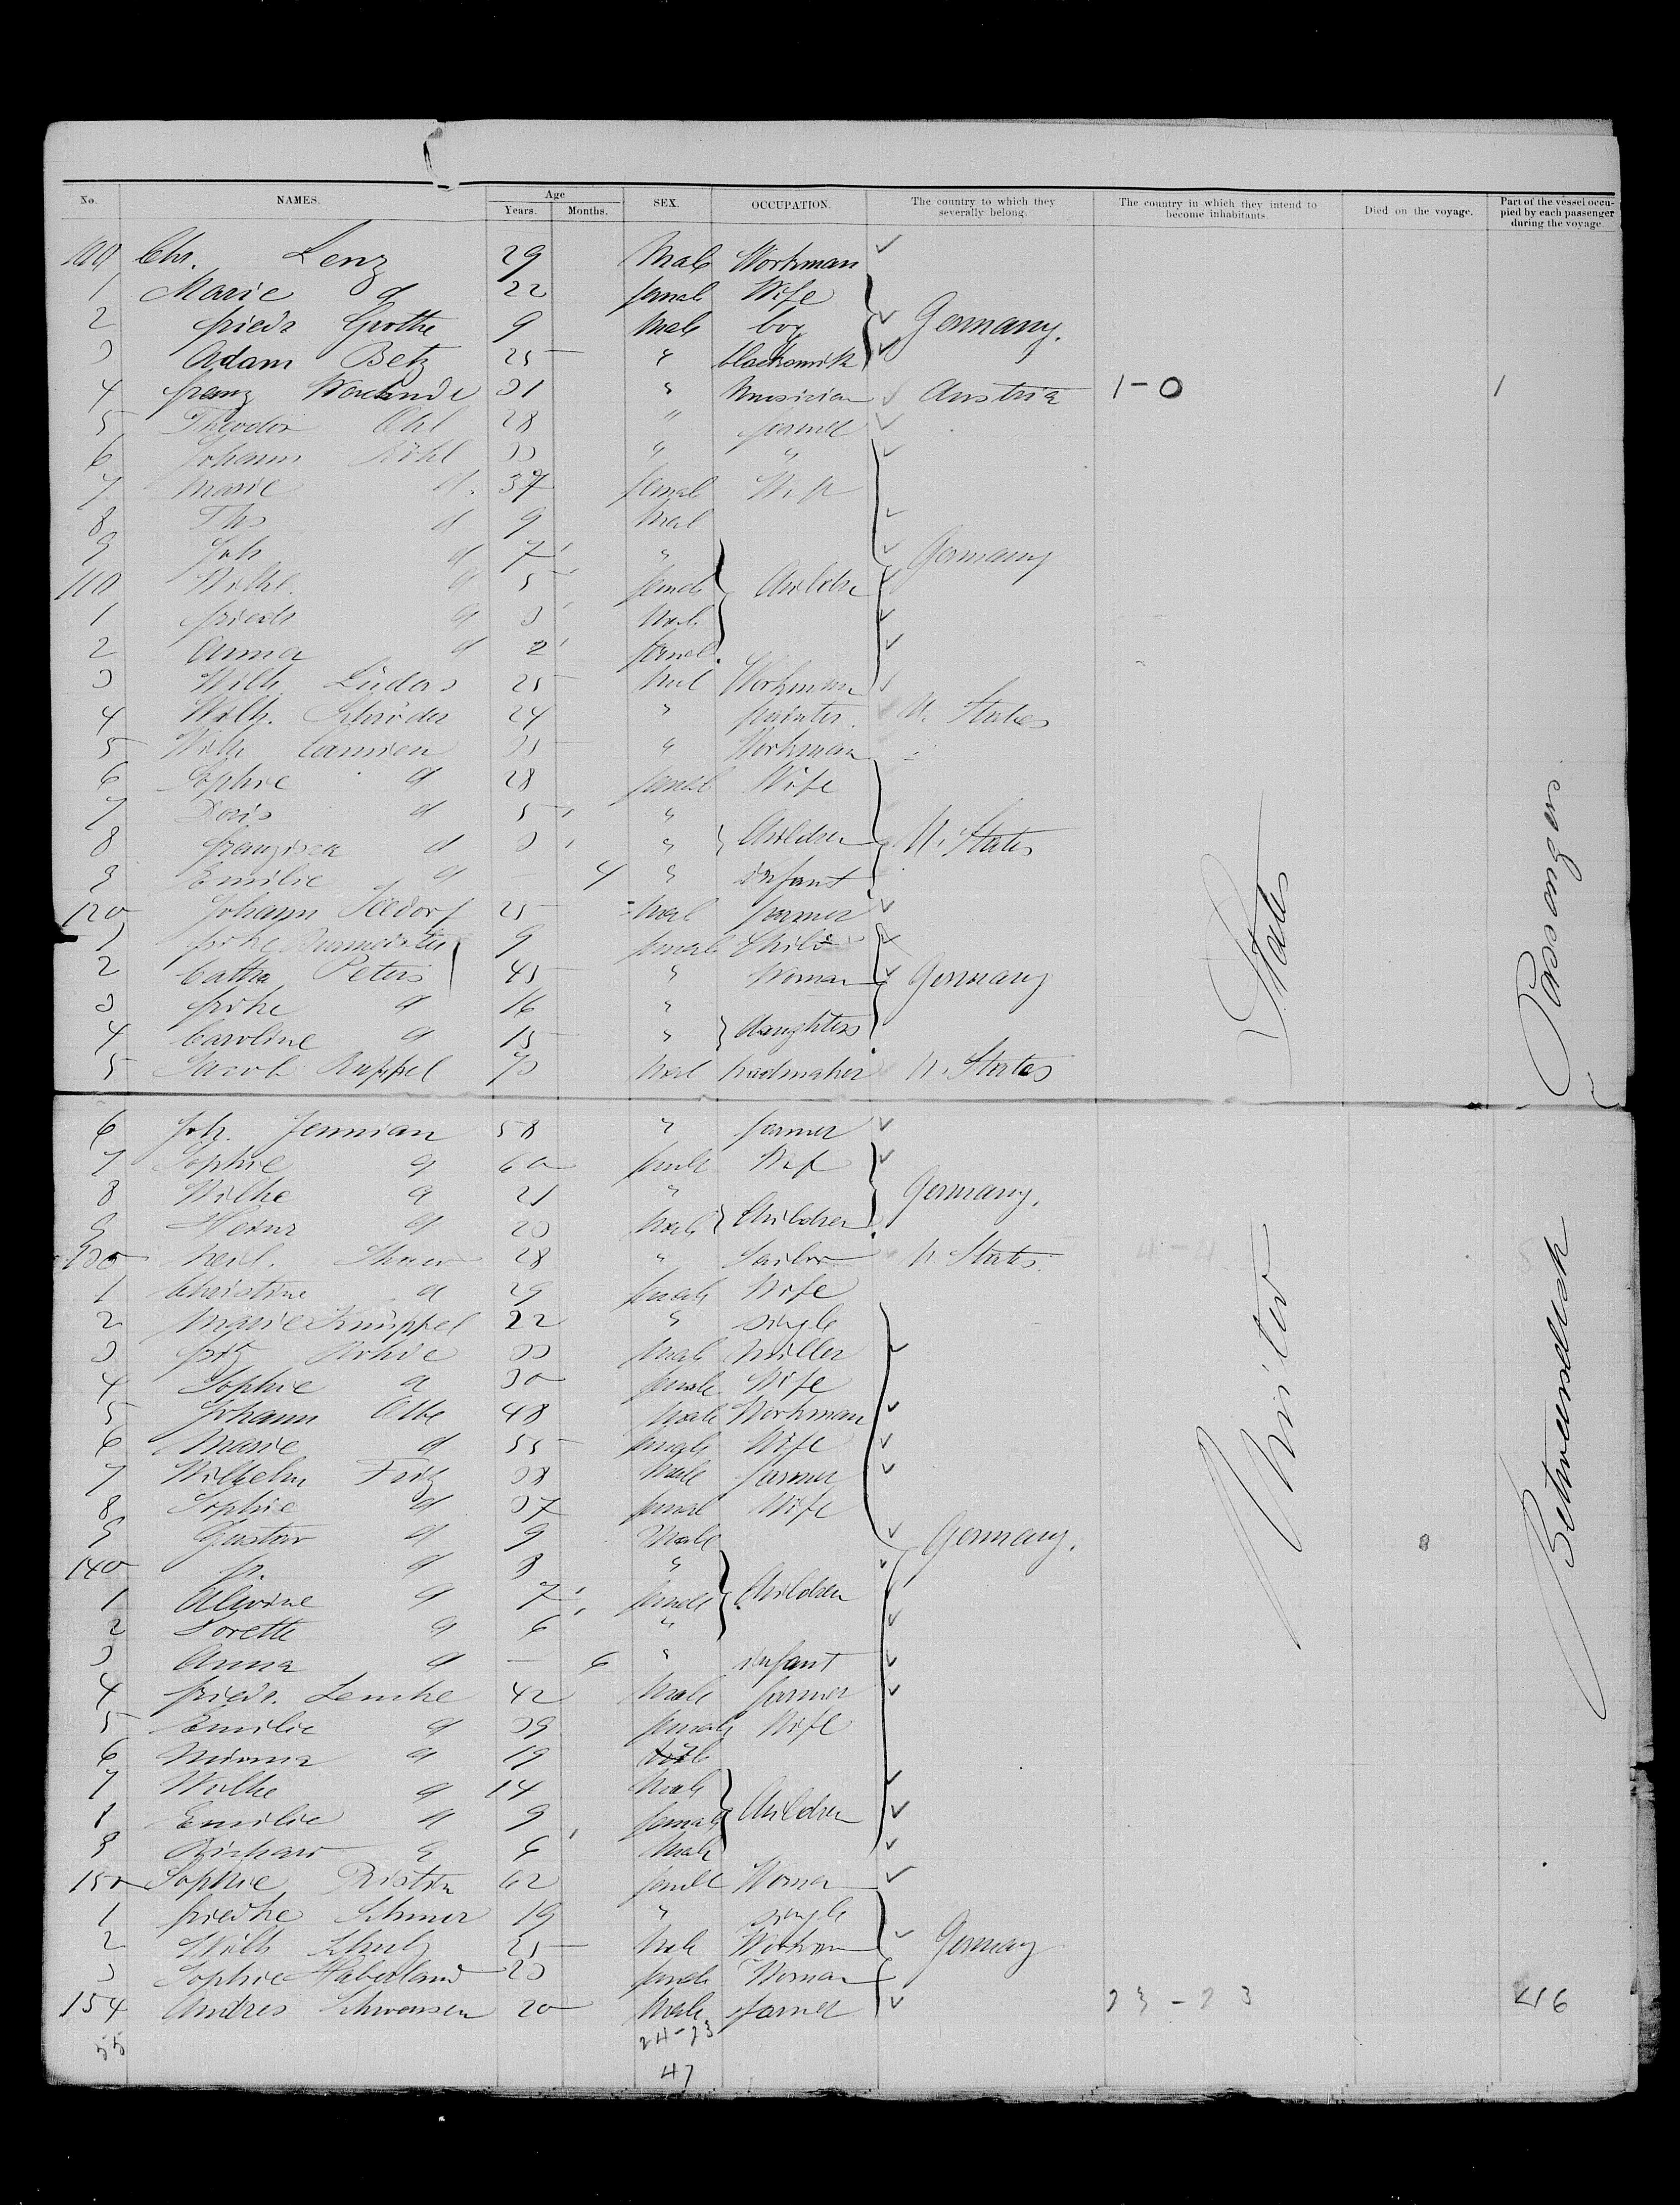 No. NAMES. Age Years. Months. SEX. OCCUPATION. The country to which they severally belong. The country in which they intend to become inhabitants. Died on the voyage. Part of the vessel occupied by each passenger during the voyage
100 Chr. Lenz 29 Male Workman
1 Marie d 22 femal Wife
2 friedr Grothe 9 Male boy Germany.
3 Adam Betz 25 " blacksmith
4 franz 31 " Musician Austria 1-0 1
5 Theodor Ohl 28 " farmer
6 Johann Kihl 33 " "
7 Marie d. 37 femal Wife
8 Ths d 9 Mal
9 Joh d 7 " Germany
110 Wilhl. d 5 femal Children
1 friedr d 3 Male
2 Anna d 2 femal
3 Wilh. Lüders 25 Mal Workman
4 Wilh. Schröder 24 " painter U. States
5 Wilh Camien 35 " Workman
6 Sophie d 28 femal Wife
7 Doris d 5 "
8 franzisca d 3 " Children U. States
9 Emilie d - 4 " infant
120 Johann Seedorf 25 Mal farmer
1 frike Burmeister 9 femal Child
2 Catha Peters 45 " Woman Germany
3 frike d 16 "
4 Caroline d 15 " daughters
5 Jacob Ruppel 73 Mal U. States
6 Joh. Jennian 58 " farmer
7 Sophie d 60 femal Wife
8 Wilhe d 21 " Germany.
9 Heinr d 20 Male Children
130 28 " Sailor U. States 4-4
1 Christine d 29 female Wife
2 Marie Knüppel 22 " single
3 fritz Rohde 33 Male Miller
4 Sophie d 30 female Wife
5 Johann Albe 48 Male Workman
6 Marie d 55 female Wife
7 Wilhelm Fritz 38 Male farmer
8 Sophie d 37 femal Wife
9 Gustav d 9 Male Germany. 8
140 fr. d 8 "
1 Alwine d 7 female Children
2 Dorette d 6 "
3 Anna d - 6 " infant
4 friedr. Lemke 42 Male farmer
5 Emilie d 39 female Wife
6 Minna d 19
7 Wilhe d 14 Male
8 Emilie d 9 female Children
9 Richard d 6 Male
150 Sophie 62 femal Woman
1 friedke 19 " single
2 Wilh Schulz 25 Male Workman Germany
3 Sophie Haberland 23 female Woman
154 Andres Schwensen 20 Male farmer 23-23 46
55 24-23
47
United States
Betweendeck Passengers